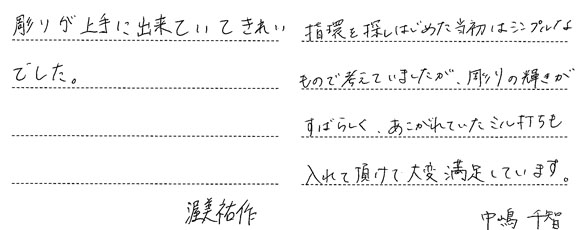 彫りが上手に出来ていてきれい
でした。
渥美祐作
指環を探しはじめた当初はシンプルな
もので考えていましたが、彫りの輝きが
すばらしく、あこがれていたミル打ちも
入れて頂けて大変満足しています。
中嶋 千智